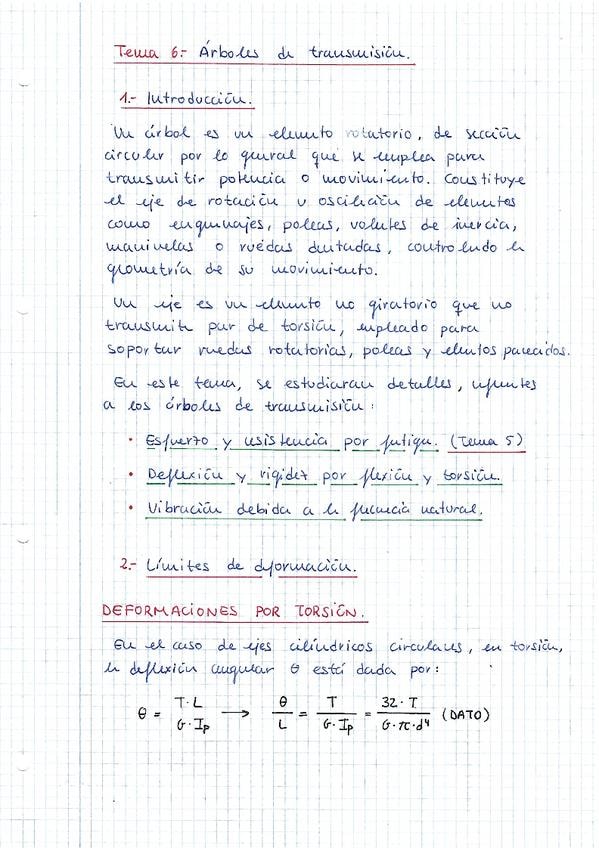 Tema 6.- Árboles de transmisión.
1.- Introducción.
Un árbol es un elemento rotatorio, de sección
circular por lo general que se emplea para
transmitir potencia o movimiento. Constituye
el eje de rotación u oscilación de elementos
como engranajes, poleas, volantes de inercia,
manivelas o ruedas dentadas, controlando la
geometría de su movimiento.
Un eje es un elemento no giratorio que no
transmite par de torsión, empleado para
soportar ruedas rotatorias, poleas y elementos parecidos.
En este tema, se estudiaran detalles, referentes
a los árboles de transmisión:
• Esfuerzo y resistencia por fatiga. (Tema 5)
• Deflexión y rigidez por flexión y torsión.
• Vibración debida a la frecuencia natural.
2.- Límites de deformación.
DEFORMACIONES POR TORSIÓN.
En el caso de ejes cilíndricos circulares, en torsión,
la deflexión angular θ está dada por:
θ = T·L / G·Ip → θ / L = T / G·Ip = 32·T / G·π·d⁴ (DATO)